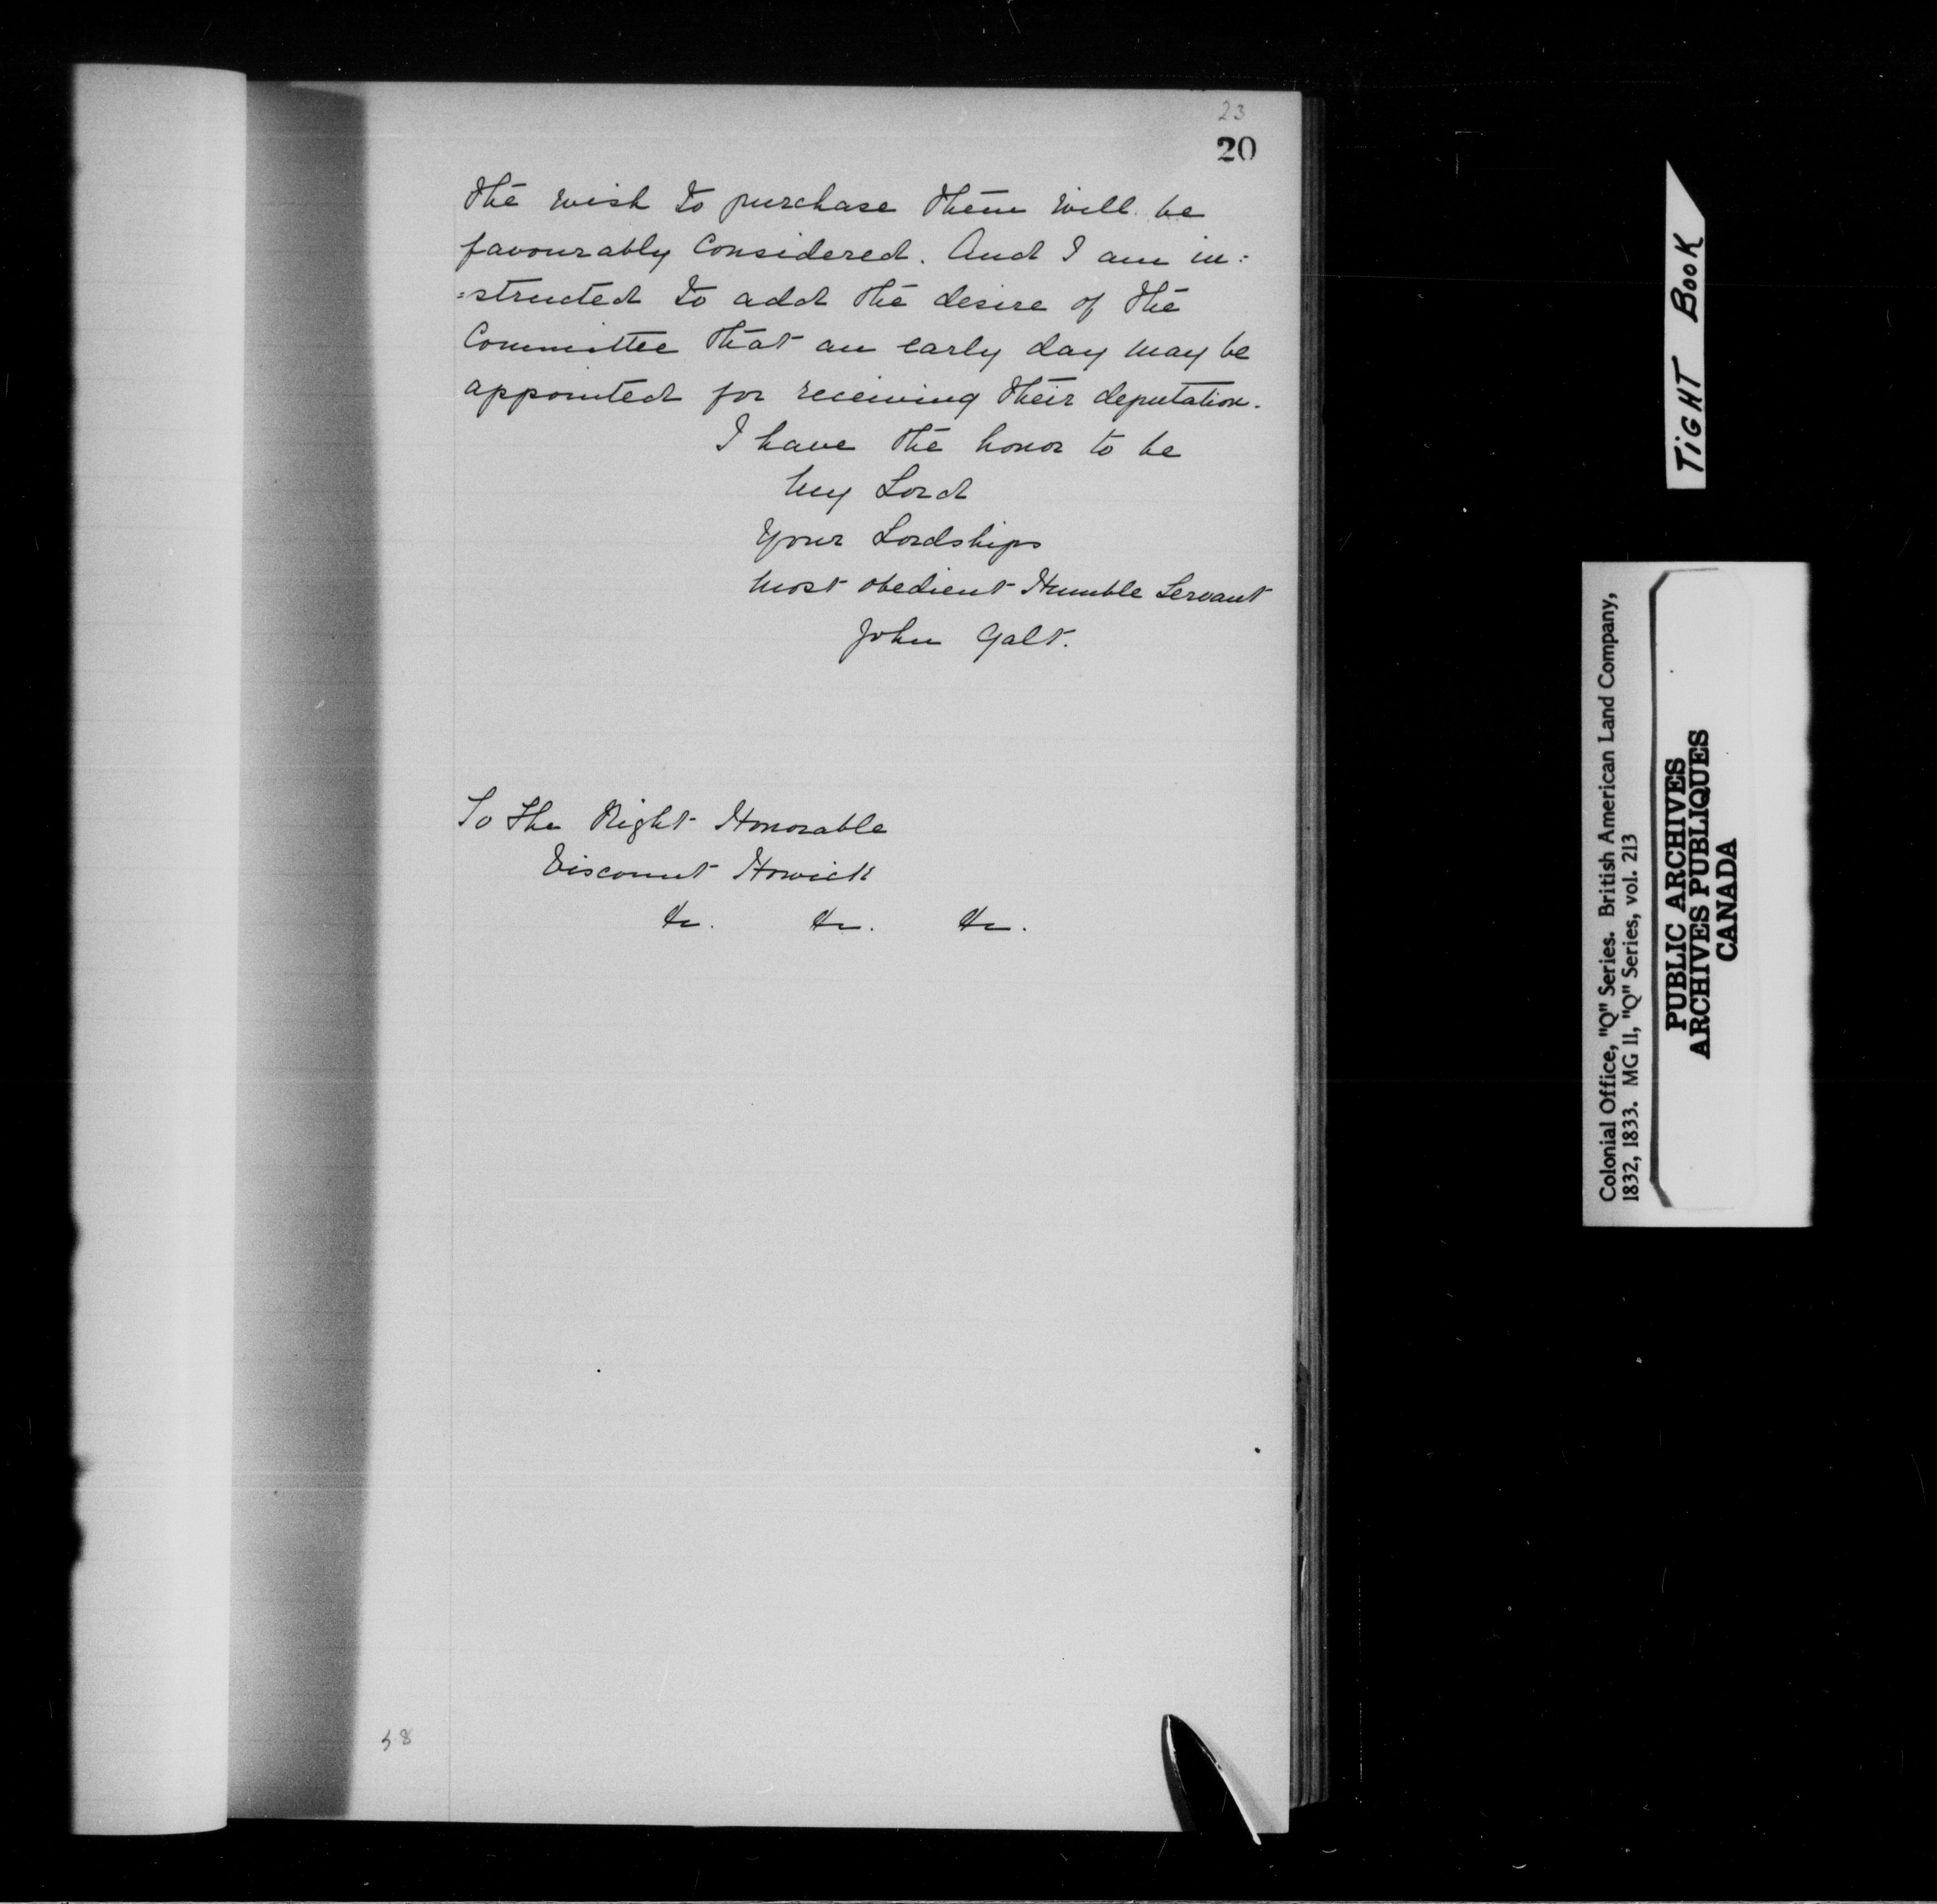 23
20
the wish to purchase them will be
favourably Considered. And I am in:
=structed to add the desire of the
Committee that an early day may be
appointed for receiving their deputation.
I have the honor to be
My Lord
Your Lordships
Most obedient Humble Servant
John Galt.
To The Right Honorable
Viscount Howick
&c. &c. &c.
58
TIGHT BOOK
Colonial Office, "Q" Series. British American Land Company,
1832, 1833. MG 11, "Q" Series, vol. 213
PUBLIC ARCHIVES
ARCHIVES PUBLIQUES
CANADA